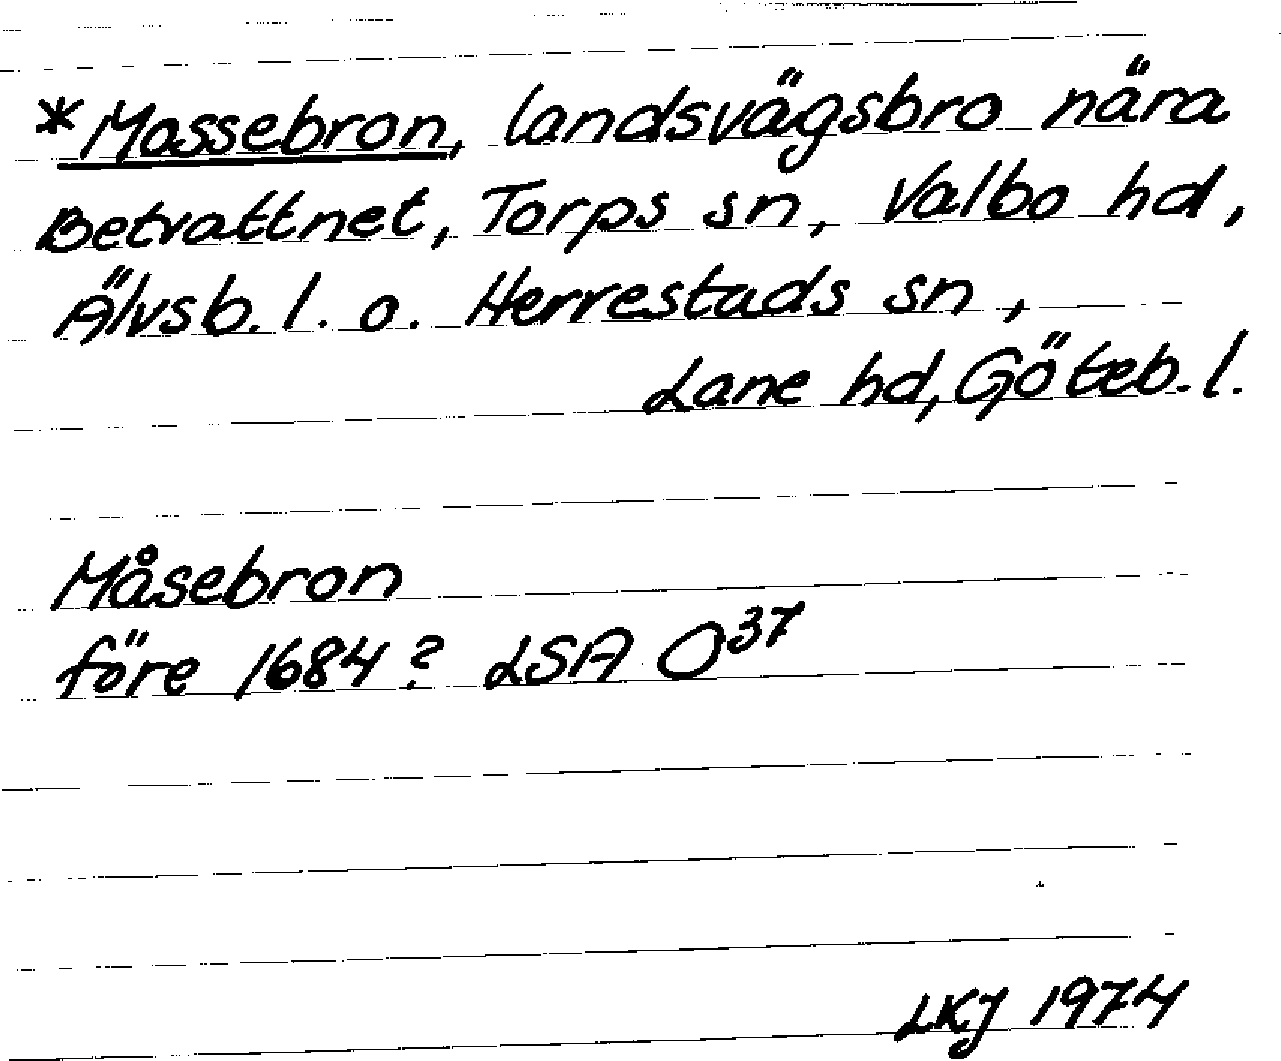 *Mossebron, landsvägsbro nära
Betvattnet, Torps sn, Valbo hd,
Älvsb. l. o. Herrestads sn,
Lane hd, Göteb. l.
Måsebron
före 1684? LSA O37
LKJ 1974